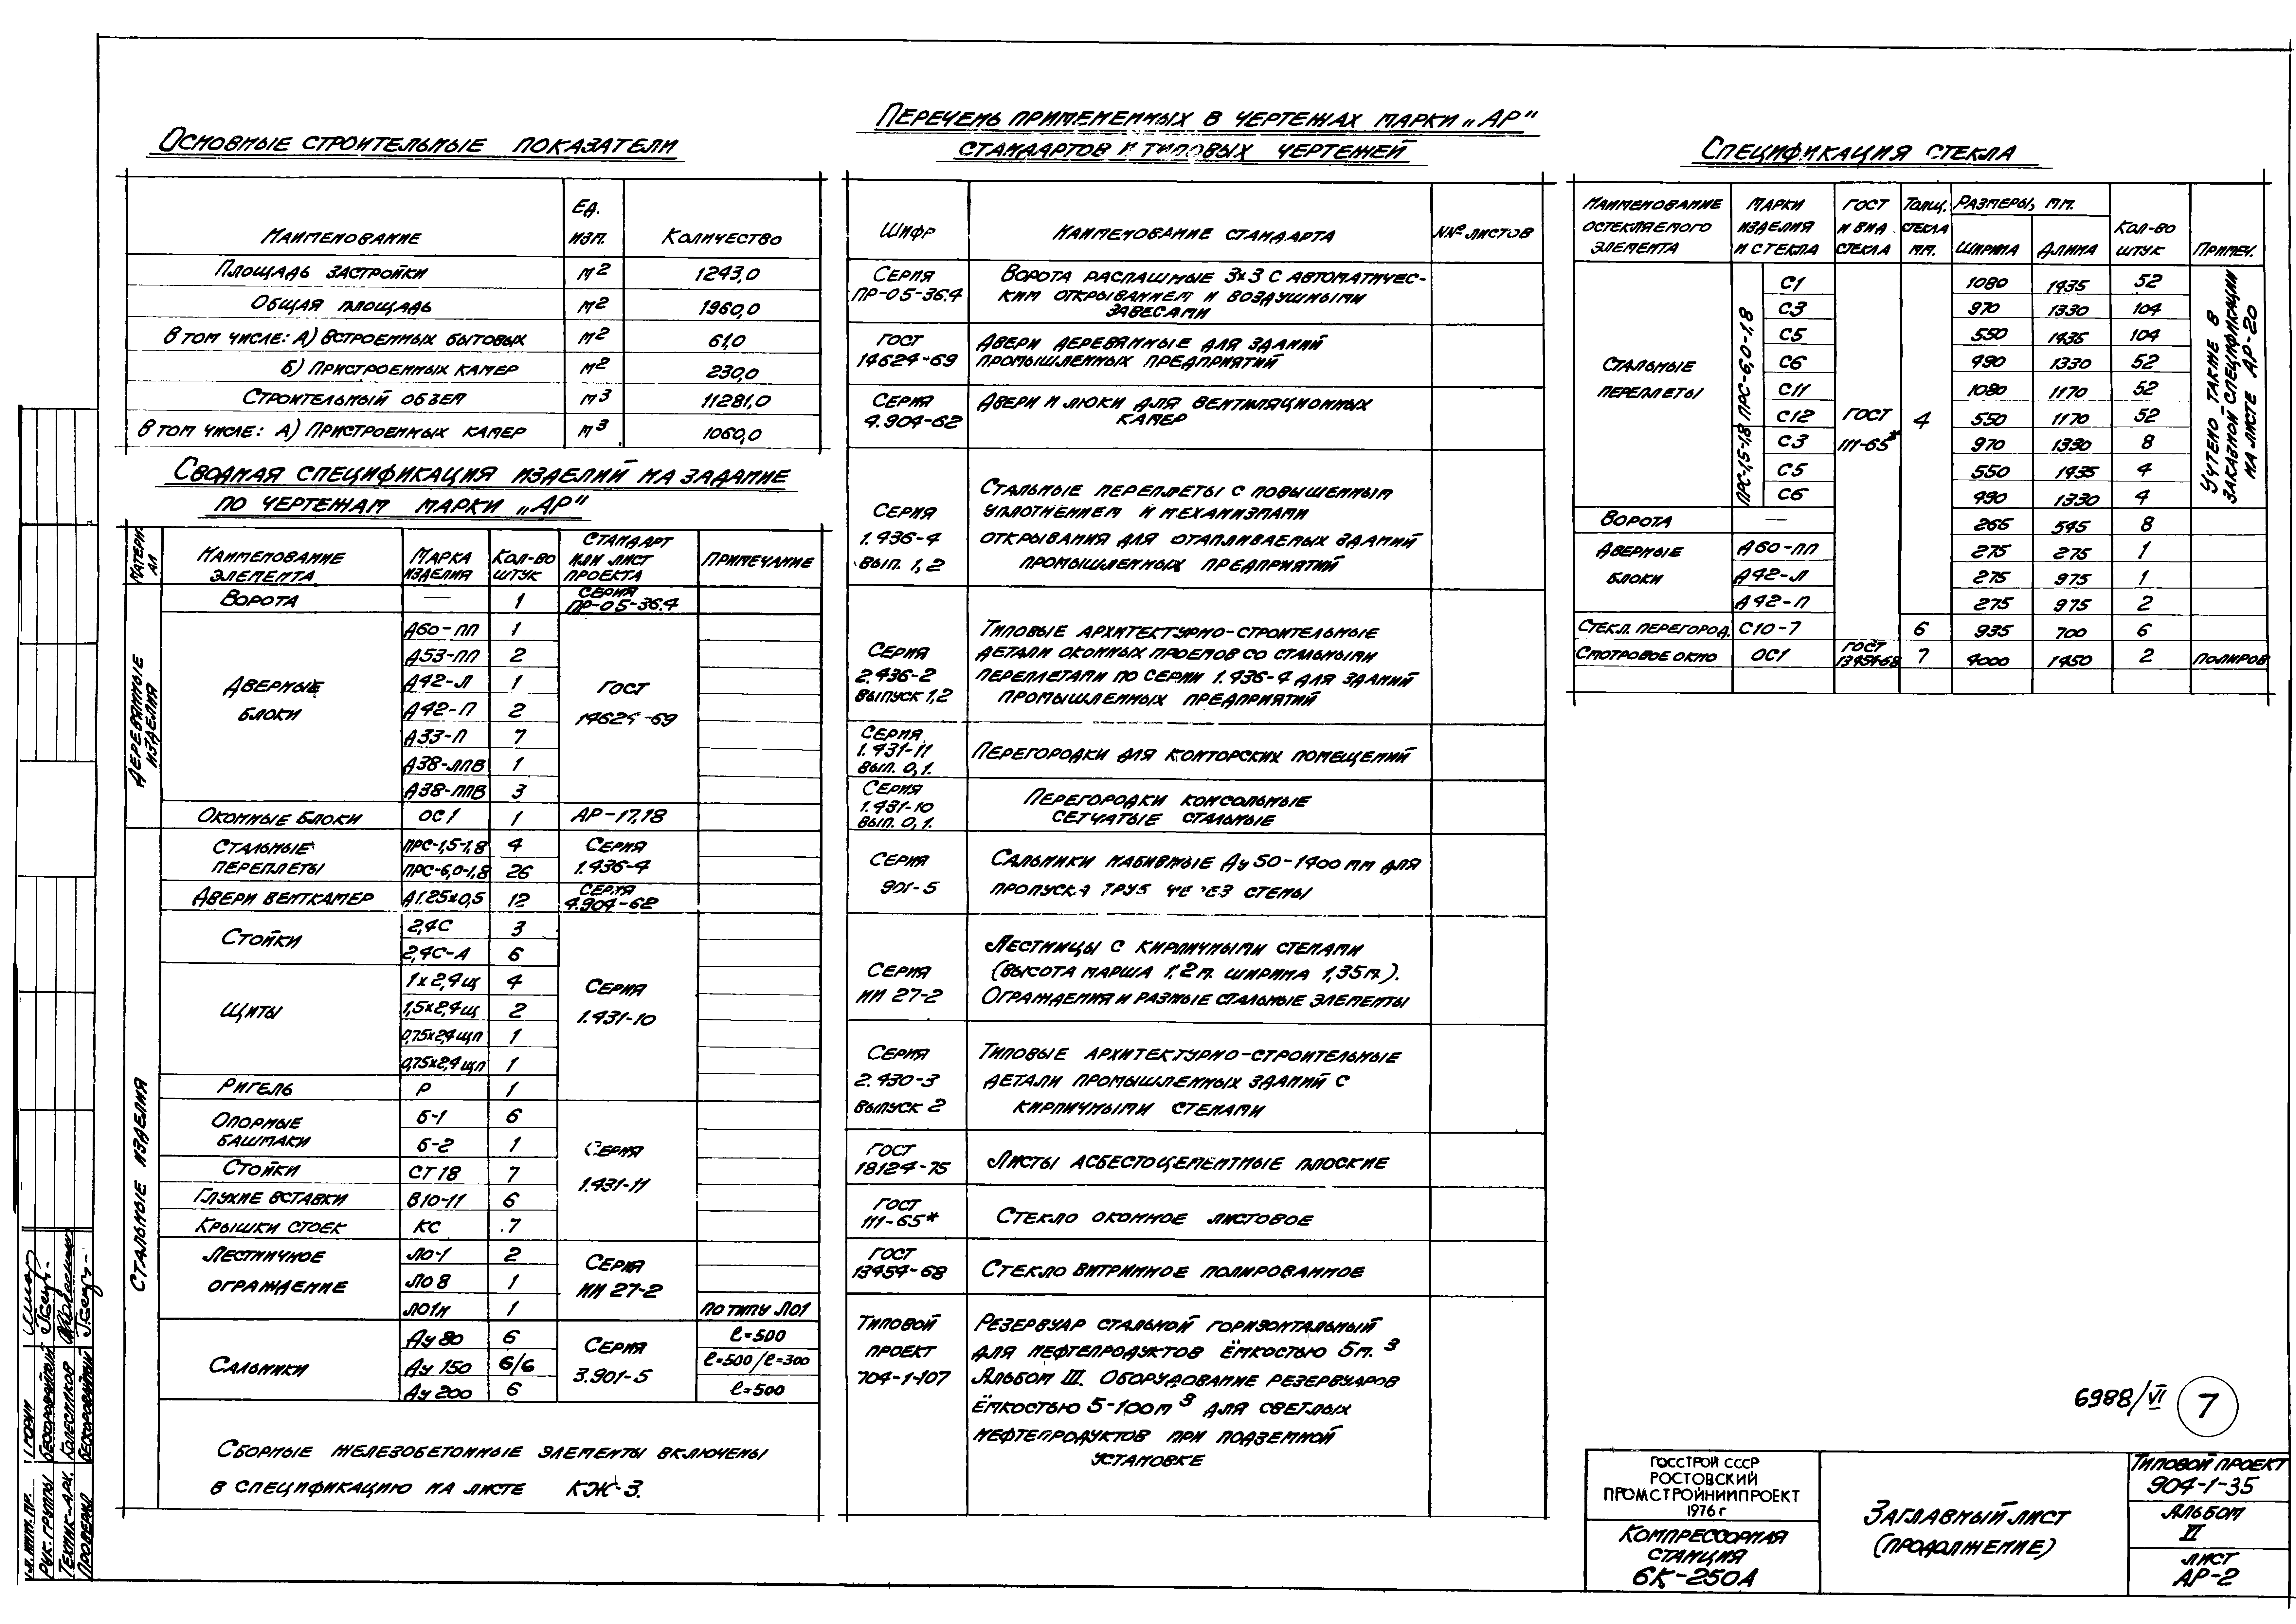 Основные строительные показатели
Наименование | Ед. изм. | Количество
Площадь застройки | м² | 1243,0
Общая площадь | м² | 1960,0
В том числе: А) Встроенных бытовых | м² | 61,0
Б) Пристроенных камер | м² | 230,0
Строительный объем | м³ | 11281,0
В том числе: А) Пристроенных камер | м³ | 1060,0
Сводная спецификация изделий на задание
по чертежам марки „АР"
Материал | Наименование элемента | Марка изделия | Кол-во штук | Стандарт или лист проекта | Примечание
Деревянные изделия
Ворота | — | 1 | Серия ПР-05-36.4
Дверные блоки | ГОСТ 14624-69
Д60-ПП | 1
Д53-ПП | 2
Д42-Л | 1
Д42-П | 2
Д33-П | 7
Д38-ЛПВ | 1
Д38-ППВ | 3
Оконные блоки | ОС1 | 1 | АР-17,18
Стальные изделия
Стальные переплеты | Серия 1.436-4
ПРС-1,5-1,8 | 4
ПРС-6,0-1,8 | 26
Двери венткамер | Д1.25х0,5 | 12 | Серия 4.904-62
Стойки | Серия 1.431-10
2,4С | 3
2,4С-А | 6
Щиты
1х2,4щ | 4
1,5х2,4щ | 2
0,75х2,4щп | 1
0,75х2,4щп | 1
Ригель | Р | 1
Опорные башмаки | Серия 1.431-11
Б-1 | 6
Б-2 | 1
Стойки | СТ18 | 7
Глухие вставки | В10-11 | 6
Крышки стоек | КС | 7
Лестничное ограждение | Серия ИИ 27-2
ЛО-1 | 2
ЛО8 | 1
ЛО1н | 1 | по типу ЛО1
Сальники | Серия 3.901-5
Ду 80 | 6 | ℓ=500
Ду 150 | 6/6 | ℓ=500/ℓ=300
Ду 200 | 6 | ℓ=500
Сборные железобетонные элементы включены
в спецификацию на листе КЖ-3.
Перечень примененных в чертежах марки „АР"
стандартов и типовых чертежей
Шифр | Наименование стандарта | №№ листов
Серия ПР-05-36.4
Ворота распашные 3х3 с автоматичес-
ким открыванием и воздушными
завесами
ГОСТ 14624-69
Двери деревянные для зданий
промышленных предприятий
Серия 4.904-62
Двери и люки для вентиляционных
камер
Серия 1.436-4 Вып. 1,2
Стальные переплеты с повышенным
уплотнением и механизмами
открывания для отапливаемых зданий
промышленных предприятий
Серия 2.436-2 Выпуск 1,2
Типовые архитектурно-строительные
детали оконных проемов со стальными
переплетами по серии 1.436-4 для зданий
промышленных предприятий
Серия 1.431-11 Вып. 0,1.
Перегородки для конторских помещений
Серия 1.431-10 Вып. 0,1.
Перегородки консольные
сетчатые стальные
Серия 901-5
Сальники набивные Ду 50-1400 мм для
пропуска труб через стены
Серия ИИ 27-2
Лестницы с кирпичными стенами
(высота марша 1,2м. ширина 1,35м.).
Ограждения и разные стальные элементы
Серия 2.430-3 Выпуск 2
Типовые архитектурно-строительные
детали промышленных зданий с
кирпичными стенами
ГОСТ 18124-75
Листы асбестоцементные плоские
ГОСТ 111-65*
Стекло оконное листовое
ГОСТ 13454-68
Стекло витринное полированное
Типовой проект 704-1-107
Резервуар стальной горизонтальный
для нефтепродуктов ёмкостью 5м.³
Альбом III. Оборудование резервуаров
ёмкостью 5-100м³ для светлых
нефтепродуктов при подземной
установке
Спецификация стекла
Наименование остекляемого элемента | Марки изделия и стекла | ГОСТ и вид стекла | Толщ. стекла мм. | Размеры, мм. Ширина | Длина | Кол-во штук | Примеч.
Стальные переплеты | ГОСТ 111-65* | 4
ПРС-6,0-1,8
С1 | 1080 | 1435 | 52
С3 | 970 | 1330 | 104
С5 | 550 | 1435 | 104
С6 | 490 | 1330 | 52
С11 | 1080 | 1170 | 52
С12 | 550 | 1170 | 52
ПРС-1,5-1,8
С3 | 970 | 1330 | 8
С5 | 550 | 1435 | 4
С6 | 490 | 1330 | 4
Учтено также в
заказной спецификации
на листе АР-20
Ворота | — | 265 | 545 | 8
Дверные блоки
Д60-пп | 275 | 275 | 1
Д42-Л | 275 | 975 | 1
Д42-П | 275 | 975 | 2
Стекл. перегород. | С10-7 | 6 | 935 | 700 | 6
Смотровое окно | ОС1 | ГОСТ 13454-68 | 7 | 4000 | 1450 | 2 | полиров
6988/VI
7
Госстрой СССР
Ростовский
Промстройниипроект
1976 г
Компрессорная
станция
6К-250А
Заглавный лист
(продолжение)
Типовой проект
904-1-35
Альбом
VI
лист
АР-2
Рук. группы Бескоровайный
Техник-арх. Колесников
Проверил Бескоровайный